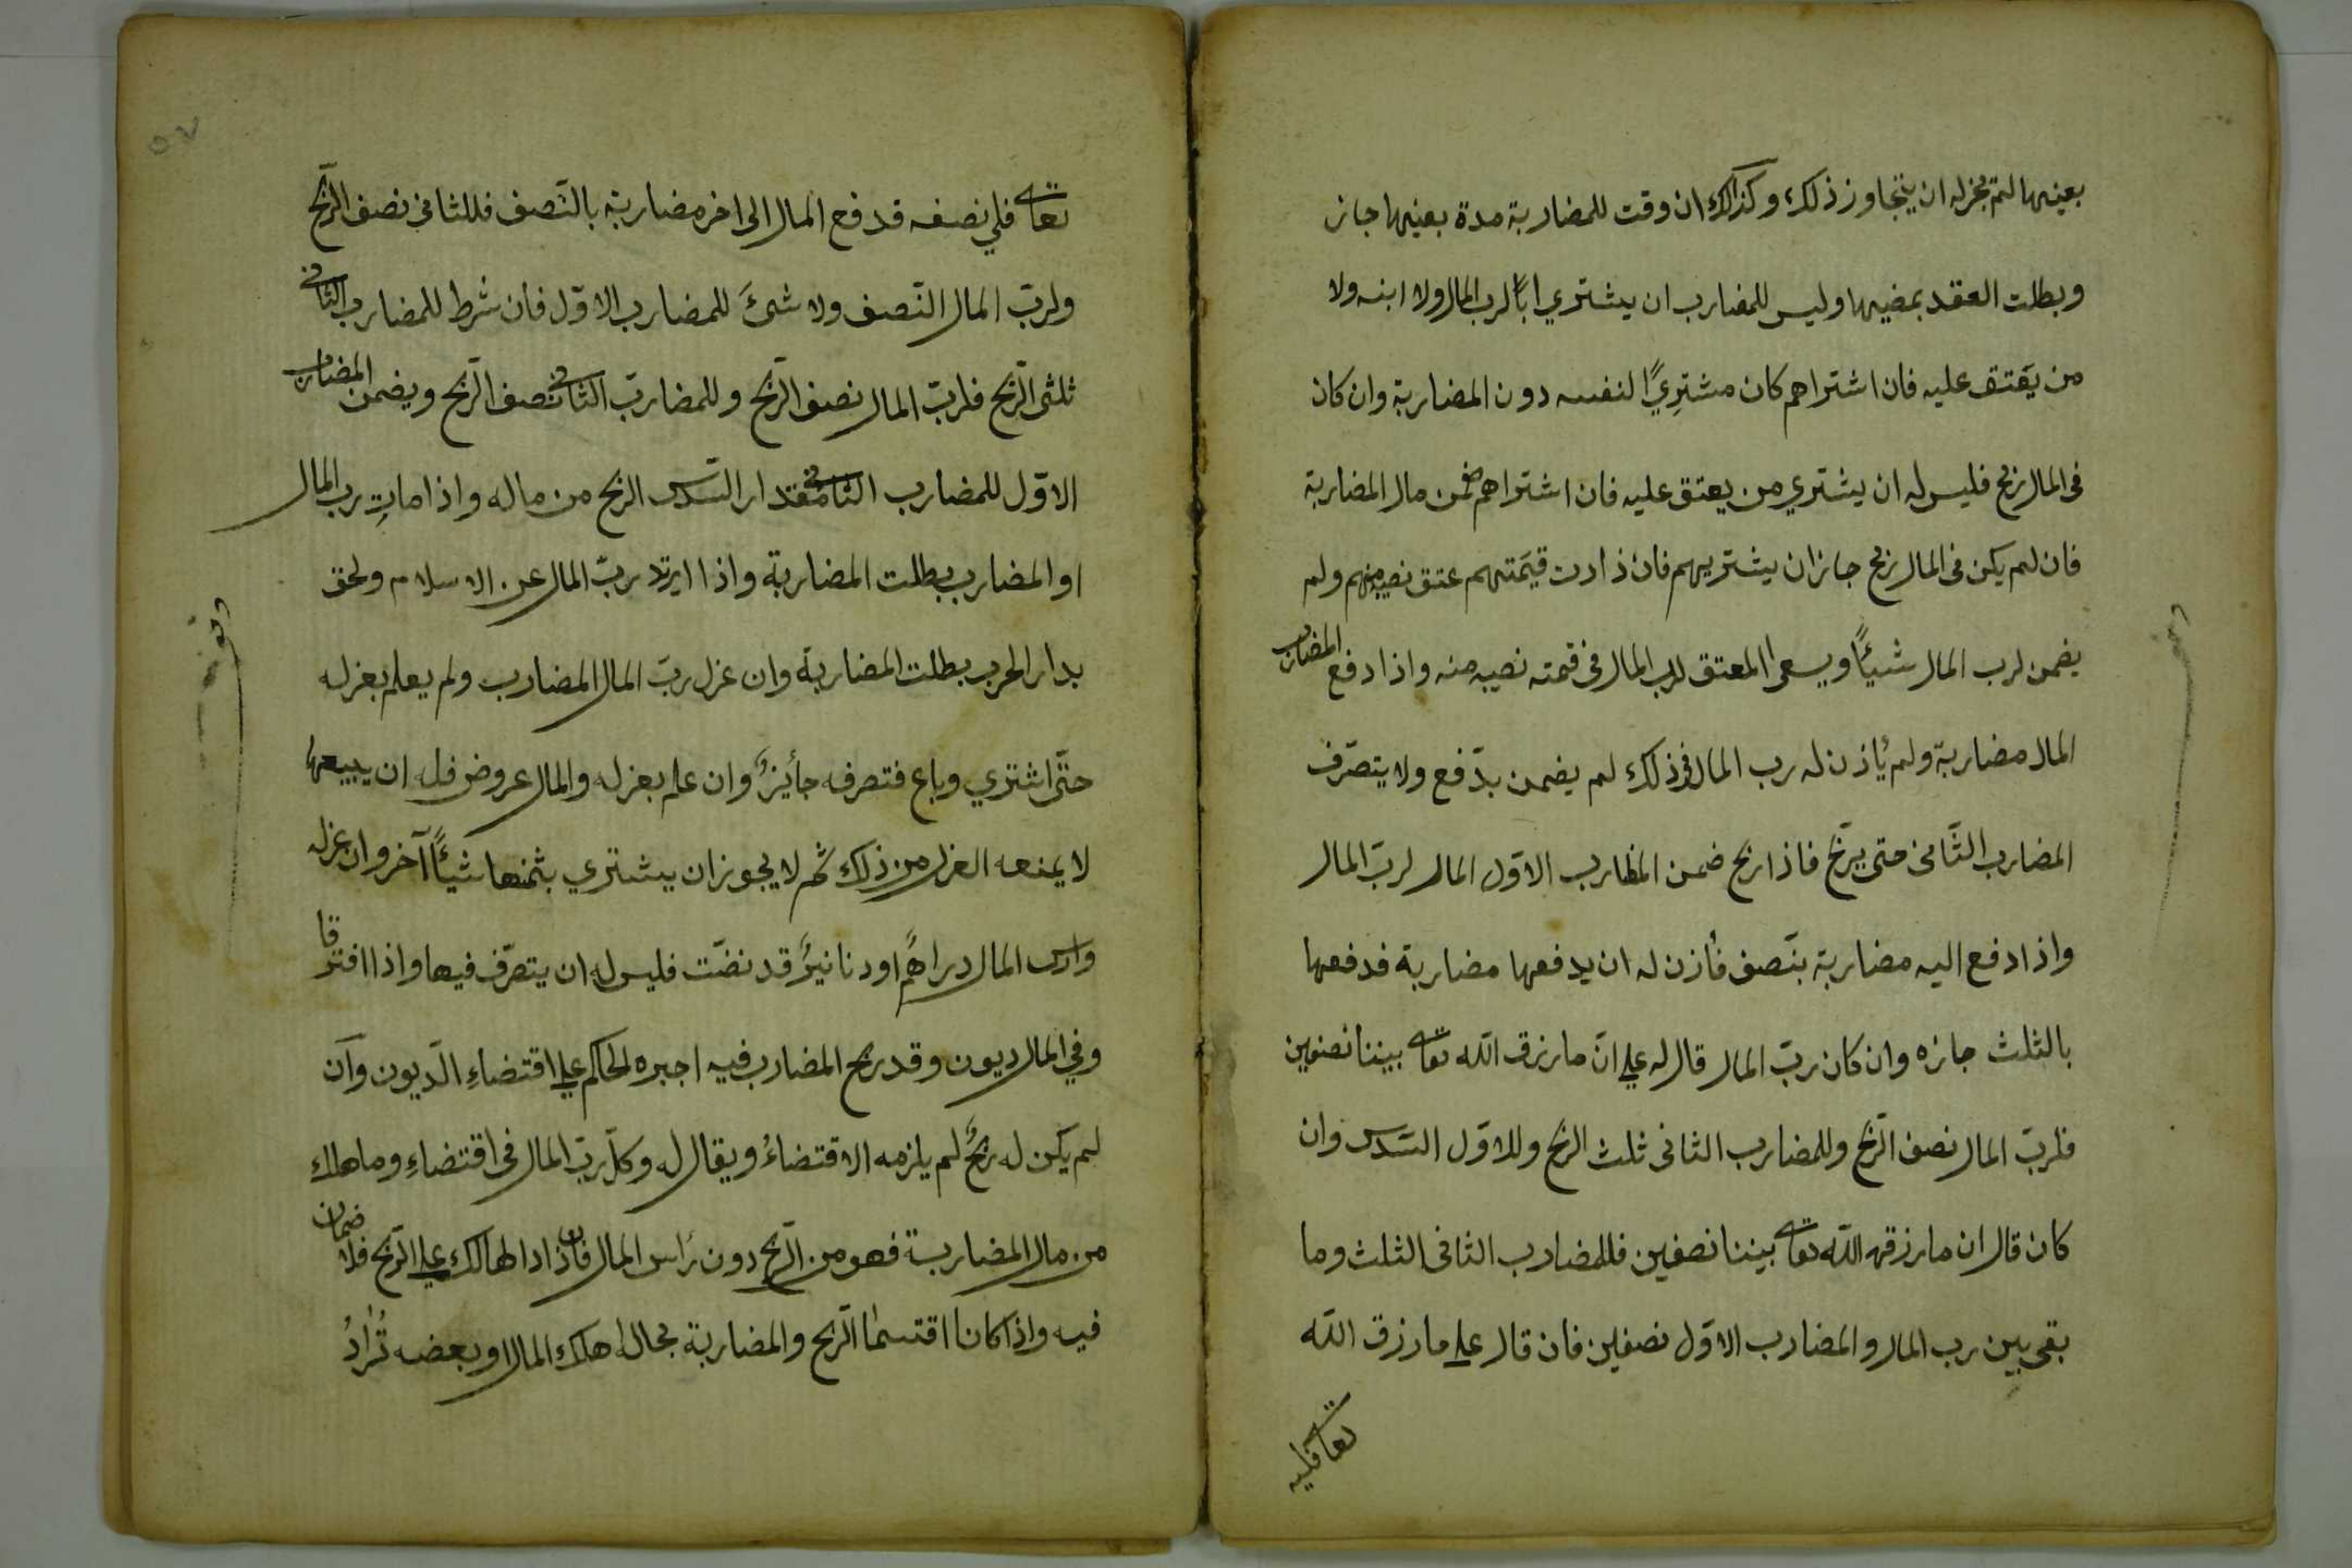 بعينها لم يجز له ان يتجاوز ذلك وكذالك ان وقت للمضاربة مدة بعينها جاز
وبطلت العقد بمضيها وليس للمضارب ان يشتري اباً لرب المال ولا ابنه ولا
من يعتق عليه فان اشتراهم كان مشتريًا لنفسه دون المضاربة وان كان
فى المال ربح فليس له ان يشتري من يعتق عليه فان اشتراهم ضمن مال المضاربة
فان لم يكن فى المال ربح جاز ان يشتريهم فان ذادت قيمتهم عتق نصيبه منهم ولم
يضمن لرب المال شيئًا ويسعى المعتق لرب المال فى قيمته نصيبه منه واذا دفع المضارب
المال مضاربة ولم يأذن له رب المال فى ذلك لم يضمن بدّفع ولا يتصرّف
المضارب الثّانى حتى يربح فاذا ربح ضمن المظارب الاوّل المال لربّ المال
واذا دفع اليه مضاربة بنّصف فأذن له ان يدفعها مضاربة فدفعها
بالثلث جازه وان كان ربّ المال قال له على انّ ما رزق الله تعالى بيننا نصفين
فلربّ المال نصف الرّبح وللمضارب الثانى ثلث الربح وللاوّل السّدس وان
كان قال ان ما رزقه اللّه تعالى بيننا نصفين فللمضارب الثانى الثلث وما
بقى بين رب المال والمضارب الاوّل نصفين فان قال على ما رزق اللّه
تعالى فلي
٥٧
تعالى فلي نصفه فدفع المال الى اخر مضاربة بالنّصف فللثانى نصف الرّبح
ولربّ المال النّصف ولا شئَ للمضارب الاوّل فأن شرط للمضارب الثانى
ثلثى الرّبح فلربّ المال نصف الرّبح وللمضاربّ الثانى نصف الرّبح ويضمن المضارب
الاوّل للمضارب الثانى مقدار السّدس الربح من ماله واذا مات رب المال
او المضارب بطلت المضاربة واذا ارتد ربّ المال عن الاسلام ولحق
بدار الحرب بطلت المضاربة وان عزل ربّ المال المضارب ولم يعلم بعزله
حتّى اشتري وباع فتصرفه جائز وان علم بعزله والمال عروض فله ان يبيعها
لا يمنعه العزل من ذلك ثم لا يجوز ان يشتري بثمنها شيئًا آخر وان عزله
وراس المال دراهم او دنانير قد نضّت فليس له ان يتصرّف فيها واذا افترقا
وفي المال ديون وقد ربح المضارب فيه اجبره الحاكم على اقتضاءِ الدّيون وان
لم يكن له ربح لم يلزمه الاقتضاءُ ويقال له وكّل ربّ المال فى اقتضاءِ وما هلك
من مال المضاربة فهو من الرّبح دون رأس المال فان ذادا الهالك على الرّبح فلا ضمان
فيه واذا كانا اقتسما الرّبح والمضاربة بحاله اهلك المال او بعضه تُرادُ